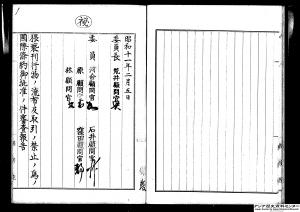 秘
昭和十一年二月五日
委員長 荒井顧問官
委員 河合顧問官 石井顧問官
原顧問官 窪田顧問官
林顧問官
猥褻刊行物ノ流布及取引ノ禁止ノ為ノ
国際条約御批准ノ件審査報告
アジア歴史資料センター